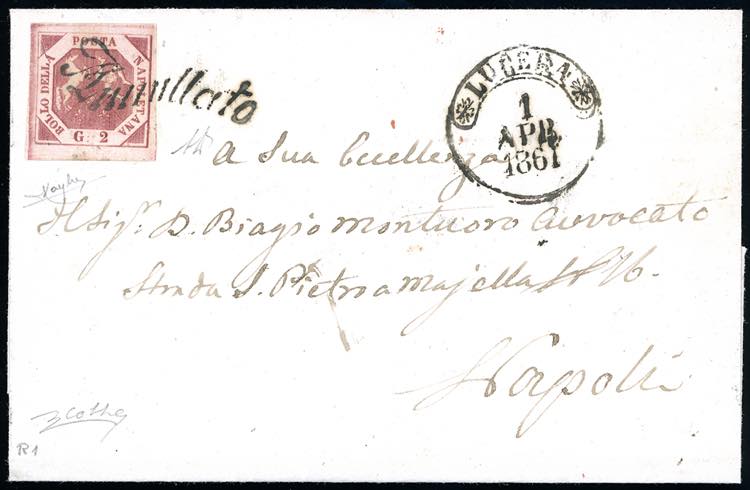 POSTA
NAPOLETANA
BOLLO DELLA
G. 2
Annullato
LUCERA
1
APR
1861
A Sua Eccellenza
Il Sigr. D. Biagio Montuoro Avvocato
Strada S. Pietro a Majella N 16.
Napoli
R1